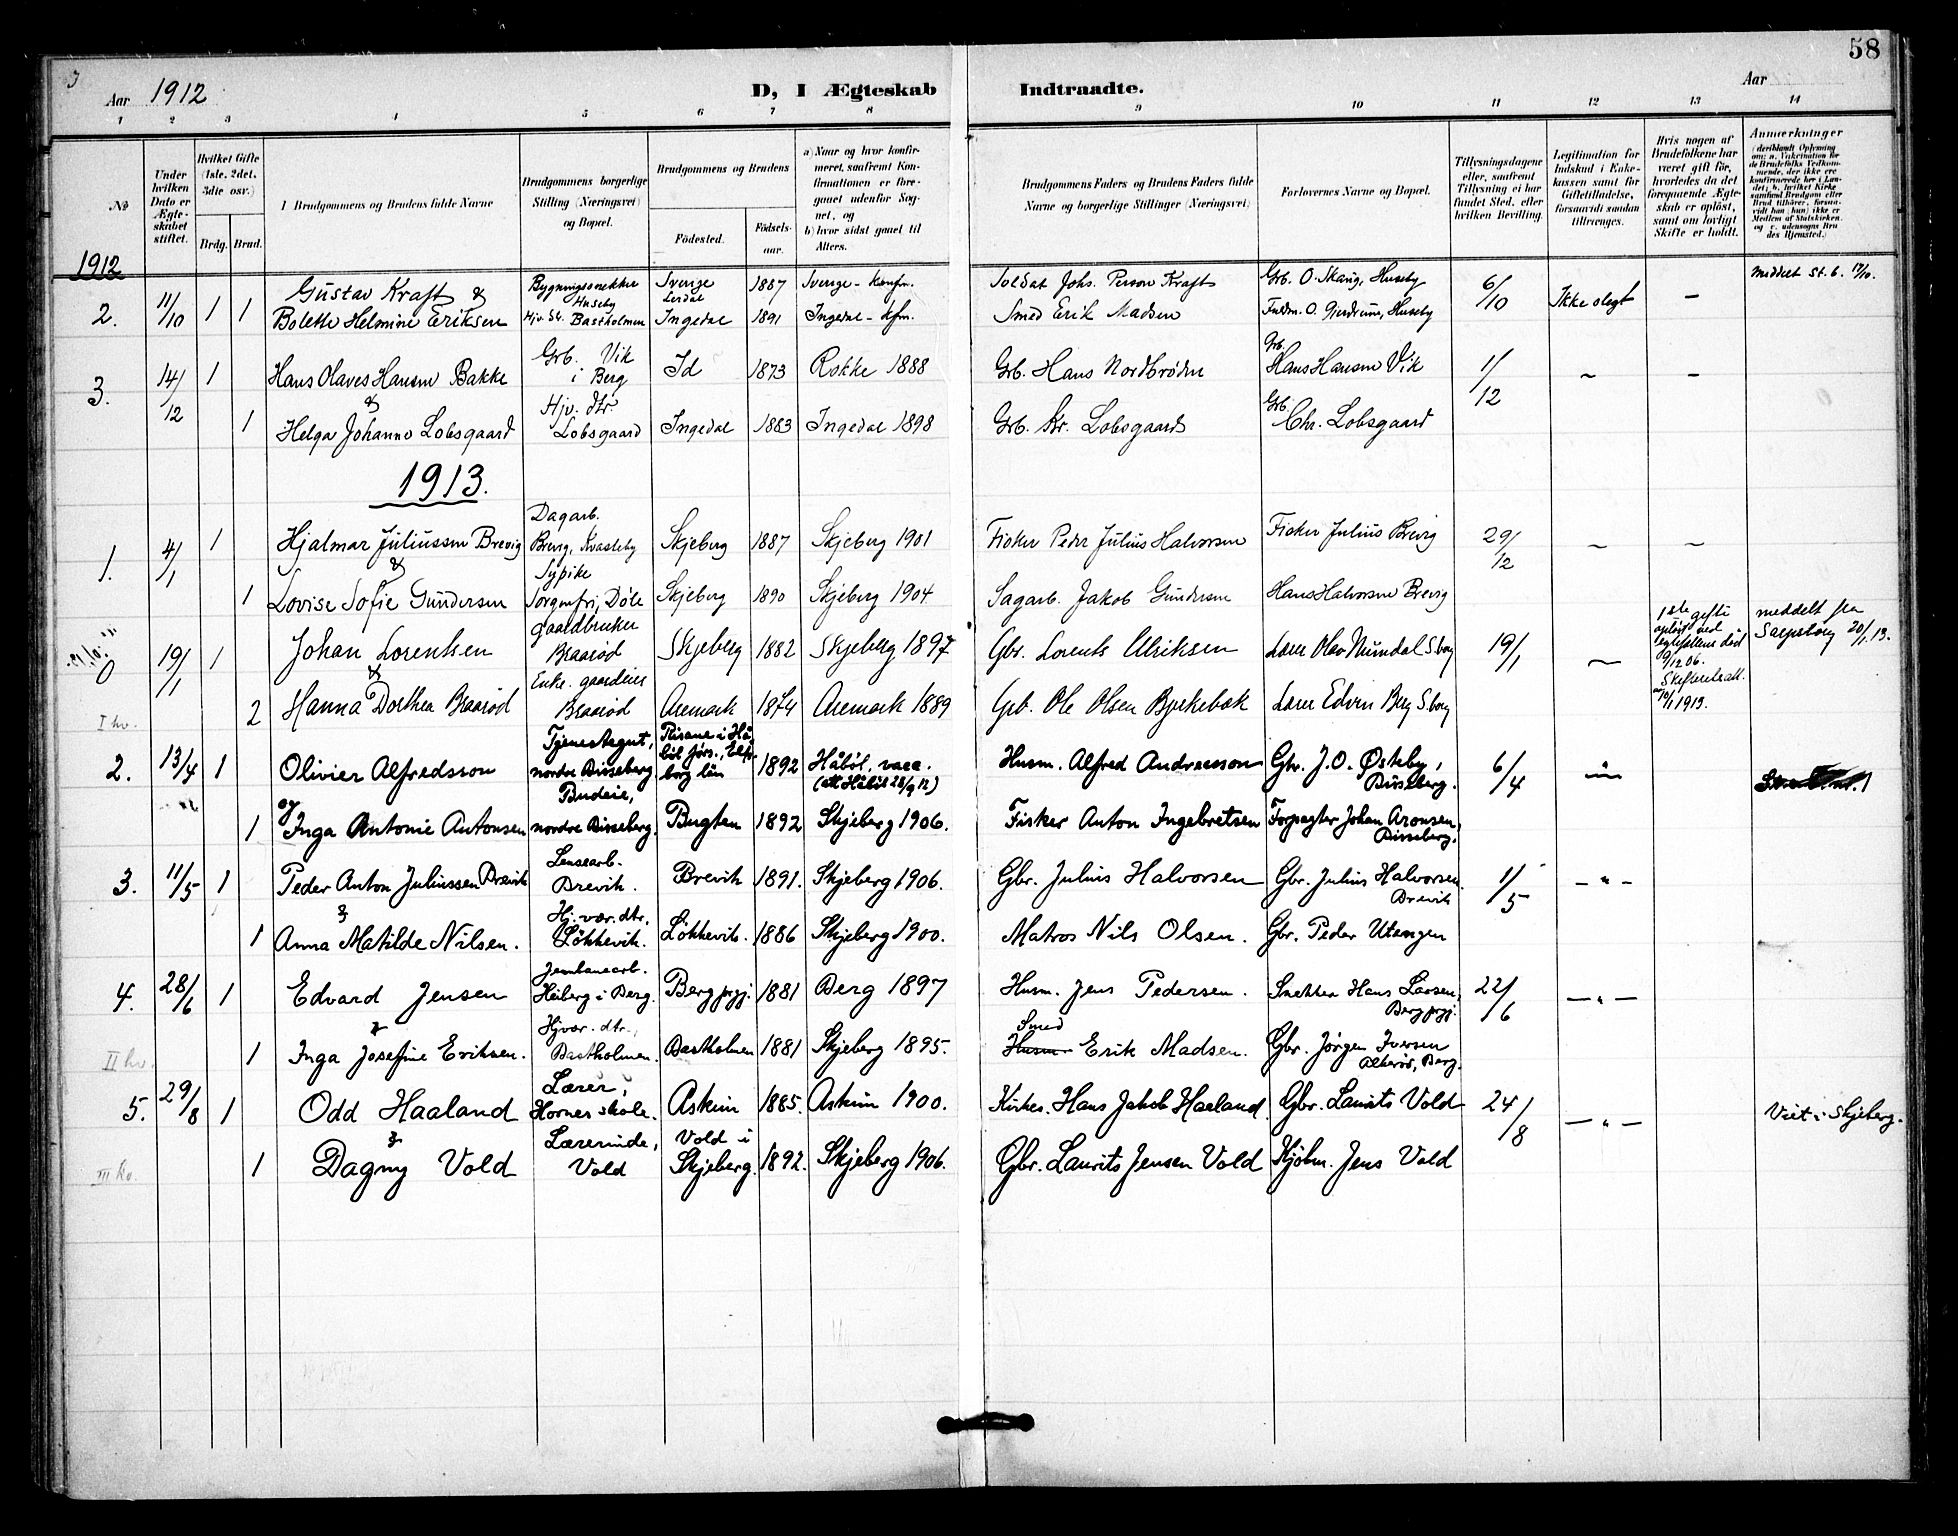 58
Aar 1912 D, I Ægteskab Indtraadte. Aar
1 2 3 4 5 6 7 8 9 10 11 12 13 14
No
Under hvilken Dato er Ægteskabet stiftet.
Hvilket Gifte (1ste, 2det, 3die osv.)
Brdg. Brud.
Brudgommens og Brudens fulde Navne
Brudgommens borgerlige Stilling (Næringsvei) og Bopæl.
Brudgommens og Brudens
Födested. Födselsaar.
a) Naar og hvor konfirmeret, saafremt Konfirmationen er foregaaet udenfor Sognet, og
b) hvor sidst gaaet til Alters.
Brudgommens Faders og Brudens Faders fulde Navne og borgerlige Stillinger (Næringsvei)
Forlovernes Navne og Bopæl.
Tillysningsdagene eller, saafremt Tillysning ei har fundet Sted, efter hvilken Bevilling.
Legitimation for Indskud i Enkekassen samt for Giftetilladelse, forsaavidt saadan tiltrænges.
Hvis nogen af Brudefolkene har været gift før, hvorledes da det foregaaende Ægteskab er opløst, samt om lovligt Skifte er holdt.
Anmærkninger
1912
2. 11/10 1 Gustav Kraft & Bygningssnekker Huseby Sverige 1887 Sverige - konfm. Soldat Johs. Person Kraft Grb. O. Skarig, Huseby 6/10 Ikke olegt - meddelt St. b. 17/10.
1 Bolette Helmine Eriksen Hjv. St. Bastholmen Ingedal 1891 Ingedal - kfm. Smed Erik Madsen Fuldm. O. Gjerdrum, Huseby
3. 14/12 1 Hans Olaves Hansen Bakke & Grb. Vik i Berg Id 1873 Rokke 1888 Grb. Hans Nordbrøden Grb. Hans Hansen Vik 1/12 ~ -
1 Helga Johanne Lobsgaard Hjv. dtr. Lobsgaard Ingedal 1883 Ingedal 1898 Grb. Kr. Lobsgaard Grb. Chr. Lobsgaard
1913.
1. 4/1 1 Hjalmar Juliussen Brevig & Dagarb. Brevig, Kvasteby Skjeberg 1887 Skjeberg 1901 Fisker Peder Julius Halvorsen Fisker Julius Brevig 29/12 ~ ~
1 Lovise Sofie Gundersen Sypike Sorgenfri, Döle Skjeberg 1890 Skjeberg 1904 Sagarb. Jakob Gundersen Hans Halvorsen Brevig
0 19/1 1 Johan Lorentsen & Gaardbruker Braarød Skjeberg 1882 Skjeberg 1897 Gbr. Lorents Ulriksen Lærer Olav Numdal S.borg 19/1 ~ 1ste gifte opløst ved egtefællens död 9/12 06. Skifteretsatt. 10/1 1913. meddelt fra Sarpsborg 20/1.13.
I kv. 2 Hanna Dorthea Braarød Enke. gaardeier Braarød Aremark 1874 Aremark 1889 Grb. Ole Olsen Bjerkebæk Lærer Edvin Berg S.borg
2. 13/4 1 Olivier Alfredsson og Tjenestegut, nordre Bisseberg Risane i Håböl förs., Elfsborg län 1892 Håböl, vacc. (att Håböl 28/9 12) Husm. Alfred Andreasson Gbr. J. O. Østeby, Bisseberg. 6/4 -"-
1 Inga Antonie Antonsen Budeie, nordre Bisseberg. Bugten 1892 Skjeberg 1906. Fisker Anton Ingebretsen Forpagter Johan Aronsen, Bisseberg.
3. 11/5 1 Peder Anton Juliussen Brevik & Lensearb. Brevik. Brevik 1891. Skjeberg 1906. Gbr. Julius Halvorsen Gbr. Julius Halvorsen. Brevik 1/5 -"-
1 Anna Matilde Nilsen. Hj. vær. dtr. Lökkevik. Lökkevik. 1886 Skjeberg 1900. Matros Nils Olsen. Gbr. Peder Utengen
4. 28/6 1 Edvard Jensen & Jernbanearb. Heiberg i Berg. Berg prgj. 1881 Berg 1897 Husm. Jens Pedersen. Snekker Hans Larsen, Berg prgj. 22/6 -"-
II kv. 1 Inga Josefine Eriksen. Hjvær. dtr., Bastholmen. Bastholmen 1881 Skjeberg 1895. Smed Husm. Erik Madsen. Gbr. Jørgen Iversen Alkerød, Berg.
5. 29/8 1 Odd Haaland & Lærer, Hornes skole. Askim 1885. Askim 1900. Kirkes. Hans Jakob Haaland. Gbr. Laurits Vold 24/8 -"- Viet i Skjeberg.
III kv. 1 Dagny Vold Lærerinde, Vold Vold i Skjeberg. 1892. Skjeberg 1906. Gbr. Laurits Jensen Vold Kjöbm. Jens Vold